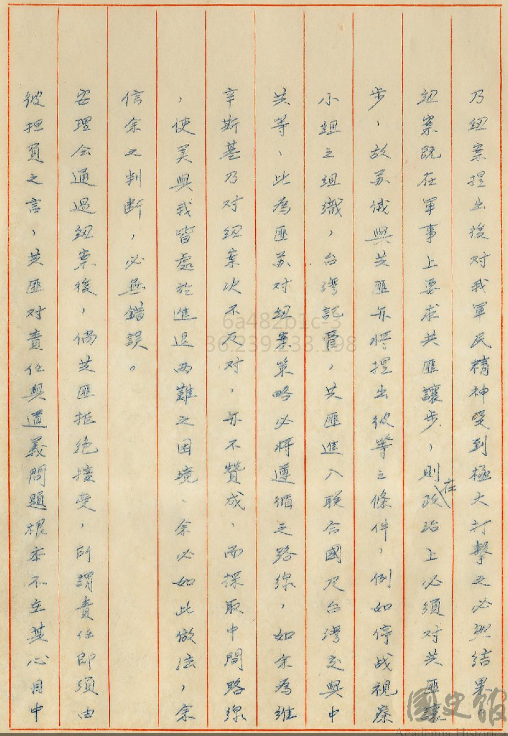 乃紐案提出後对我軍民精神受到極大打擊之必然結果
紐案既在軍事上要求共匪讓步，則在政治上必須对共匪讓
步，故苏俄與共匪亦將提出彼等之條件，例如停战視察
小組之組織，台灣託管，共匪進入联合國及台灣交與中
共等，此為匪苏对紐案策略必將遵循之路線，如余為維
辛斯基乃对紐案决不反对，亦不贊成，而採取中間路線
，使美與我皆處於進退兩難之困境、余必如此做法，余
信余之判断，必無錯誤。
安理会通過紐案後，倘共匪拒絕接受，所謂責任即須由
彼担負之言，共匪对責任與道義問題根本不在其心目中
6a482b1c-3
36.239.233.198
國史館
Academia Historica